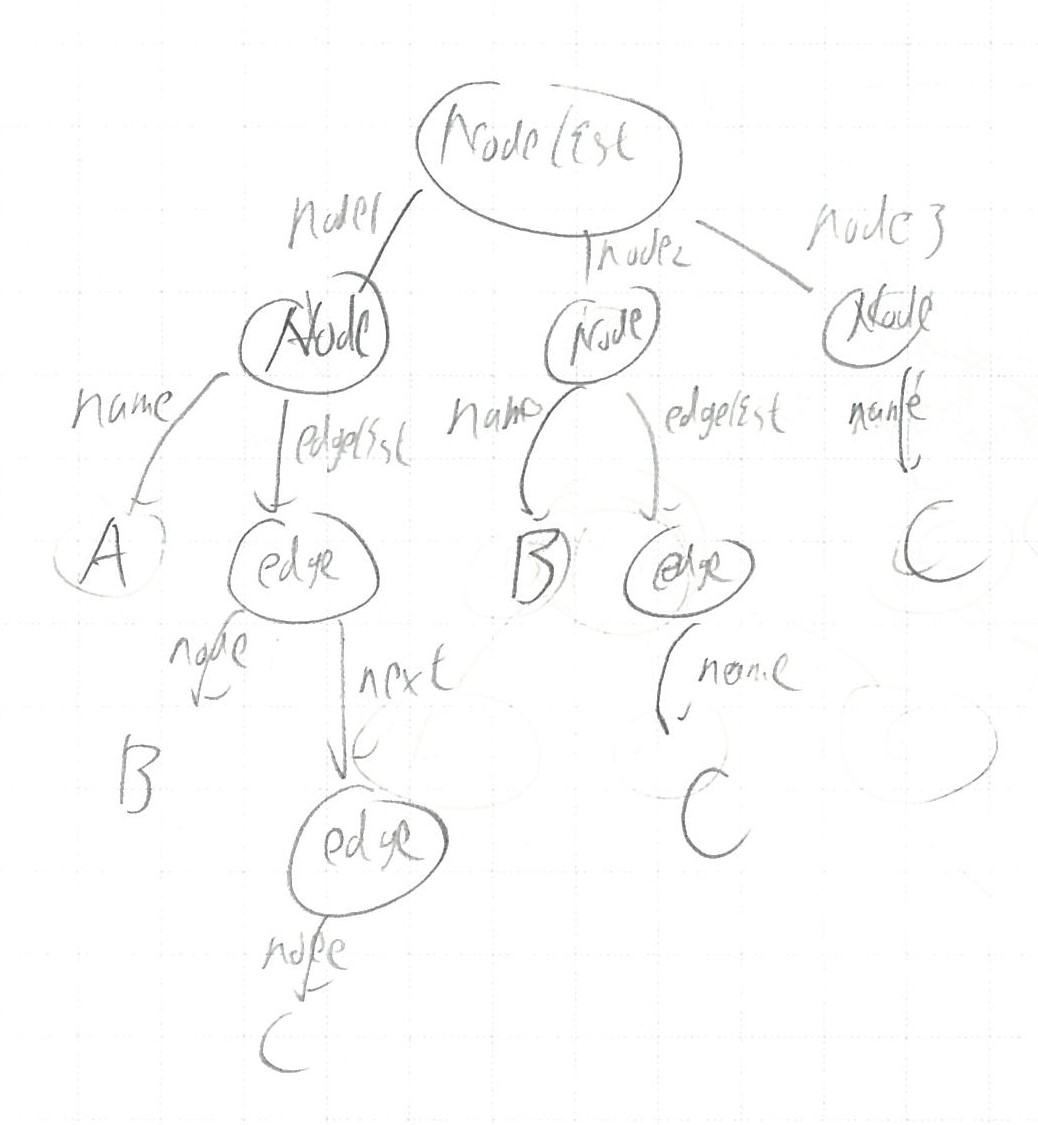 Nodelist
node1
node2
node3
Node
Node
Node
name
edgelist
name
edgelist
name
A
edge
B
edge
C
node
next
name
B
C
edge
node
C